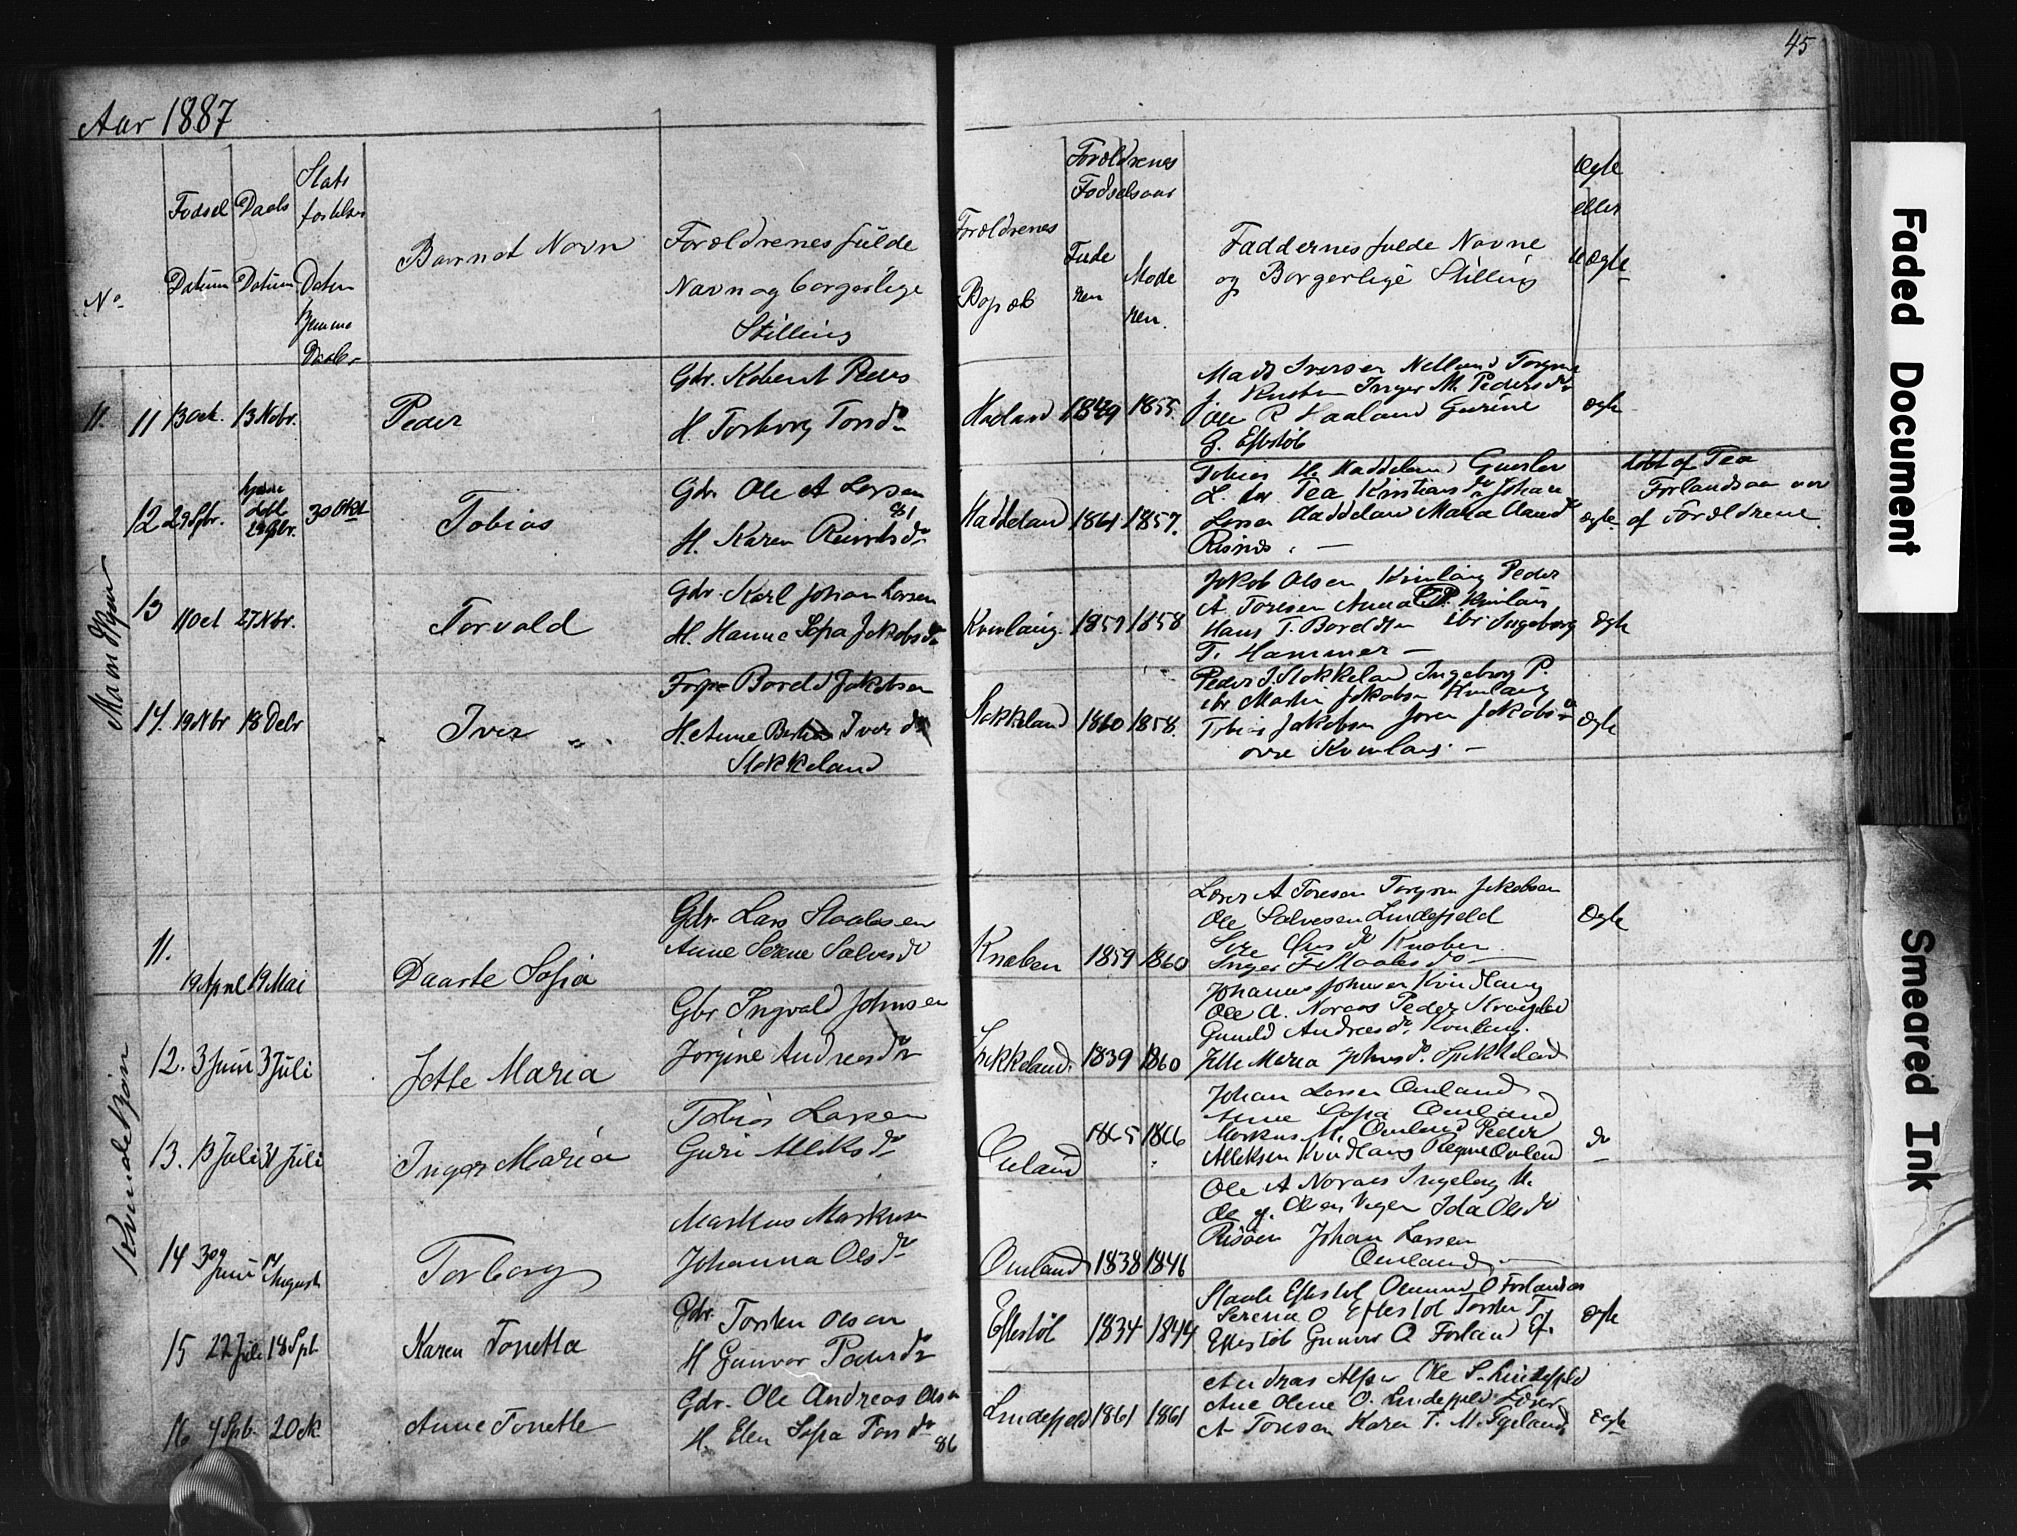 45
Aar 1887
No
Fodsel
Datum
Daabs
Datum
Stats
Datum
hjemme
Daabs
Barnet Navn
Forældrenes fulde
Navn og borgerlige
Stilling
Forældrenes
Bopæl
Forældrenes
Fodselsaar
Fade
ren
Mode
ren.
Faddernes fulde Navne
og Borgerlige Stilling
Ægte
eller
uÆgte
Mankjøn
11. 11 13 Oct. 13 Nobr.
Peder
Gdr. Robert Peders
H. Torborg Torsdr
Haaland 1849 1855.
Mads Iversen Netland Torgrim
J. Knaben Inger M. Pedersdr
Ole R Haaland Gurine
G. Eftestøl
ægte
12 29 Spbr. hjemme
døbt
29 Spbr. 30 Okt
Tobias
Gdr. Ole A Larsen
81
H. Karen Reiersdr
Haddeland 1861 1857.
Tobias H. Haddeland
L. Tea Kristiansdr Johan
Larsen Haddeland Maria
Risnes. —
ægte
døbt af Tea
Forlandsaa
af Forældrene.
13 11 Oct 27 Nbr.
Torvald
Gdr. Karl Johan Larsen
H. Hanne Sofia Jakobsdr
Kvinlaug. 1857 1858
Jakob Olsen Kvinlaug Peder
A. Toresen Anna P. Kvinlaug
Hans T. ibr. Ingeborg
T. Hammer —
ægte
14. 19 Nbr 18 Debr
Iver
Bordd Jakobsen
H. Anne Bertha Iversdr
Stokkeland
Stokkeland 1860 1858.
Peder J. Stokkeland Ingeborg P.
ibr Martin Jakobsen Kvinlaug
Tobias Jakobsen Joren Jakobsdr
øvre Kvinlaug. —
ægte
Kvindekjøn
11. 19 April 19 Mai
Daarte Sofia
Gdr Lars Staalesen
Anne Serene Salvesdr
Knaben 1859 1860
Lærer A Toresen Torgrim Jakobsen
Ole Salvesen Lindefjeld
Sire Knaben
Inger F Staalesdr —
Ægte
12. 3 Juni 3 Juli
Jette Maria
Gbr Ingvald Johnsen
Jørgine Andreasdr
Stokkeland. 1839 1860
Johannes Johnsen Kvindlaug
Ole A. Noraas Peder
Gunuld Andreasdr. Kvinlaug.
Jette Maria Johnsdr.
13. 13 Juli 31 Juli
Inger Maria
Tobias Larsen
Guri Alleksdr
Omland 1865 1866
Johan Larsen Omland
Anne Sofia Omland
Markus M. Omland Peder
Alleksen Kvindlaug Regine Omland
do
14 30 Juni 14 Augusti
Torborg
Markus Markusen
Johanna Olsdr
Omland 1838 1846
Ole A Noraas Ingeborg M.
Ole g. Olsen Ida Olsdr
Risøen Johan Larsen
Omland —
15 22 Juli 18 Spt
Karen Tonetta
Gdr. Torsten Olsen
H Gunvor Pedersdr
Eftestøl 1834 1849
Staale Eftestøl Omund O Forlandsaa
Serena O Eftestøl Torsten T.
Eftestøl Gunvor O Forland
ægte
16 4 Spb. 2 Ok.
Anne Tonette
Gdr. Ole Andreas Olsen
H. Elen Sofia Torsdr
86
Lindefjeld 1861 1861
Andreas Ole S. Lindefjeld
Ane Oline O. Lindefjeld Lærer
A Toresen Karen T. M. Fgeland
ægte
Faded Document
Smeared Ink